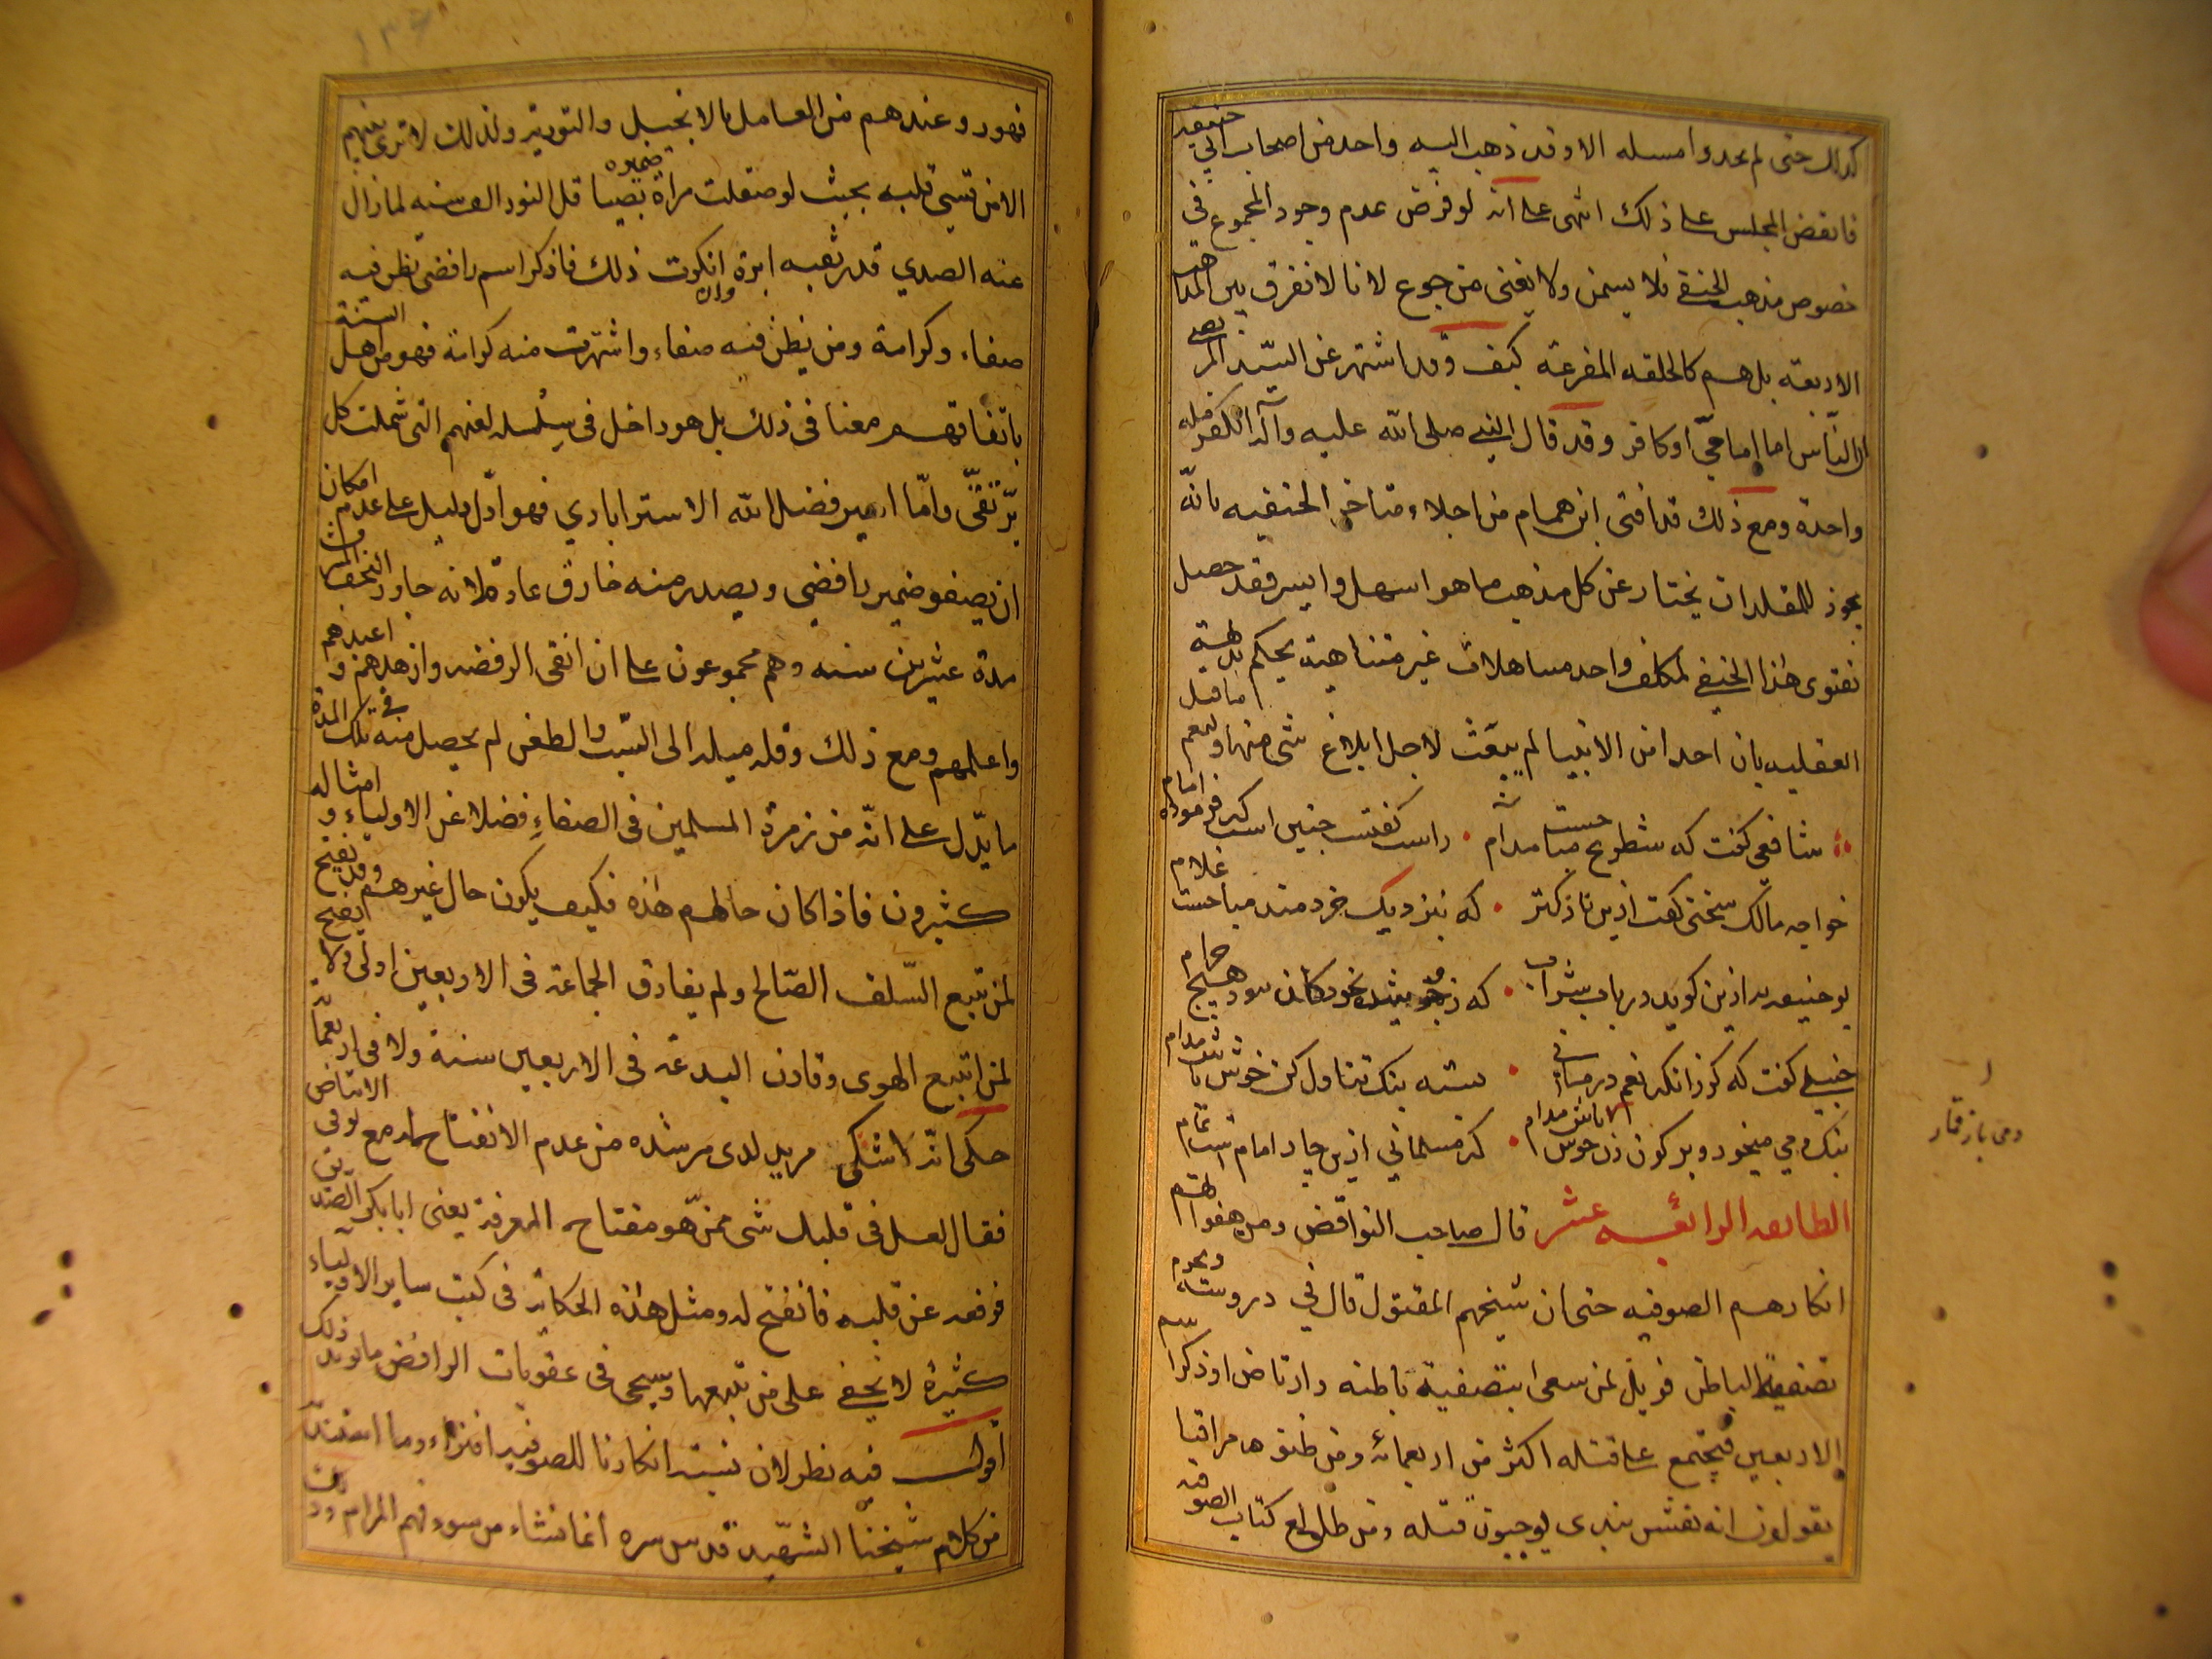 كذلك حتى لم يجدوا مسئله الا وقد ذهب اليه واحد من اصحاب ابي حنيفه
فانقض المجلس على ذلك انتهى على انه لو فرض عدم وجود المجموع في
خصوص مذهب الحنفي فلا يسمن ولا يغني من جوع لانا لا نفرق بين المذاهب
الاربعة بل هم كالحلقه المفرغة كيف وقد اشتهر عن السيد المرتضى
ان الناس اما امامي او كافر وقد قال النبي صلى الله عليه وآله الكفر مله
واحدة ومع ذلك قد افتى ابن همام من اجلاء متاخر الحنفيه بانه
يجوز للمقلد ان يختار عن كل مذهب ما هو اسهل وايسر فقد حصل
بفتوى هذا الحنفي لمكلف واحد مساهلات غير متناهية يحكم بديهة
العقليه بان احدا من الانبيا لم يبعث لاجل ابلاغ شي منها ولنعم ما قيل
شافعي كفت كه شطرنج مباحست مدام راست كفتست چنين است كه فرموده امام
خواجه مالك سخنی كفت ازين نازكتر كه بنزديك خردمند مباحست غلام
بو حنيفه به ازين كويد در باب شراب كه ز جوشيده بخور كان نبود هيچ حرام
حنبلی كفت كه كر زانكه بغم درمانی بسته بنك تناول كن خوش باش مدام
بنك و می ميخور و بر كون زن خوش باش مدام كه مسلمانی ازين چار امام است تمام
الطايفه الرابعه عشر قال صاحب النواقض ومن هفواتهم
انكارهم الصوفيه حتى ان شيخهم المقتول قال في دروسه ويحرم
تصفية الباطن فويل لمن سعى بتصفية باطنه وارتاض او ذكر اسم
الاربعين فيجتمع على قتله اكثر من اربعمائة ومن ظنوه مراقبا
يقولون انه نقشبندى يوجبون قتله ومن طالع كتاب الصوفيه
دمی باز قار
فهو وعندهم من العامل بالانجيل والتورية ولذلك لا ترى منهم
الا من قسى قلبه بحيث لو صقلت مراة ضميره بصيقل النور الف سنه لما زال
عنه الصدي قدر ثقبه ابرة وان انكرت ذلك فاذكر اسم رافضي نظن فيه
صفاء وكرامة ومن يظن فيه صفاء واشتهرت منه كرامة فهو من اهل السنة
باتفاقهم معنا في ذلك بل هو داخل في سلسله لعنهم التى شملت كل
بر تقى واما امير فضل الله الاسترابادي فهو اول دليل على عدم امكان
ان يصفو ضمير رافضي ويصدر منه خارق عادة لانه جاور النجف
مدة عشرين سنه وهم مجموعون على ان اتقى الرفضه وازهدهم و اعبدهم
واعلمهم ومع ذلك وقله ميله الى السب والطعن لم يحصل منه في تلك المدة
ما يدل على انه من زمرة المسلمين في الصفاء فضلا عن الاولياء و امثاله
كثيرون فاذا كان حالهم هذه فكيف يكون حال غيرهم وقد يفتح
لمن تتبع السلف الصالح ولم يفارق الجماعة في الاربعين اولى ولا يفتح
لمن اتبع الهوى وقارن البدعة في الاربعين سنة ولا في اربعمأة
حكى انه اشتكى مريد لدى مرشده من عدم الانفتاح له مع توفي الارتياض
فقال لعل في قلبك شى ممن هو مفتاح المعرفة يعنى ابا بكر الصديق
فرفعه عن قلبه فانفتح له ومثل هذه الحكاية في كتب ساير الاولياء
كثيرة لا يخفى على من تتبعها وسيجى في عقوبات الروافض ما يويد ذلك
اقول فيه نظر لان نسبة انكارنا للصوفية افتراء وما استند
من كلام شيخنا الشهيد قدس سره انما نشاء من سوء فهم المرام